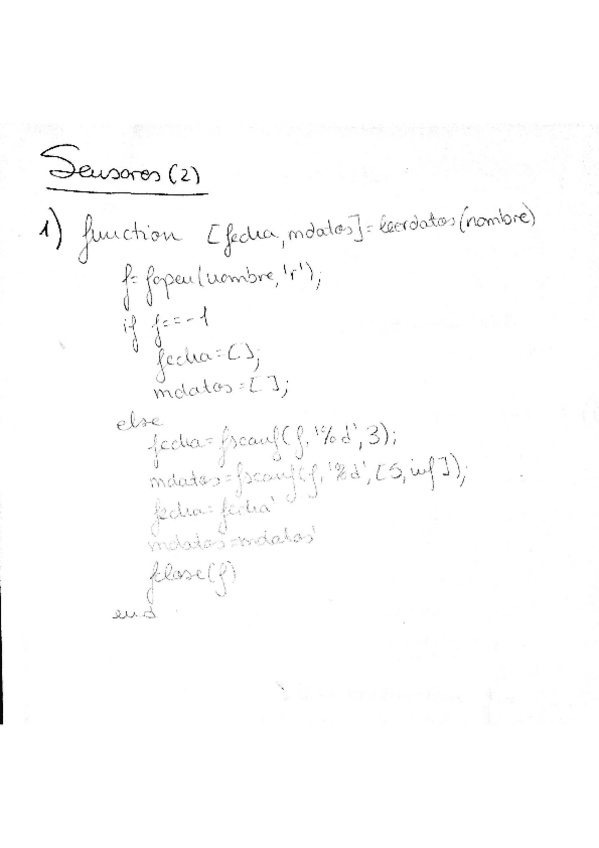 Sensores (2)
1) function [fecha, mdatos] = leerdatos(nombre)
f = fopen(nombre, 'r');
if f == -1
fecha = [];
mdatos = [];
else
fecha = fscanf(f, '%d', 3);
mdatos = fscanf(f, '%d', [5, inf]);
fecha = fecha'
mdatos = mdatos'
fclose(f)
end